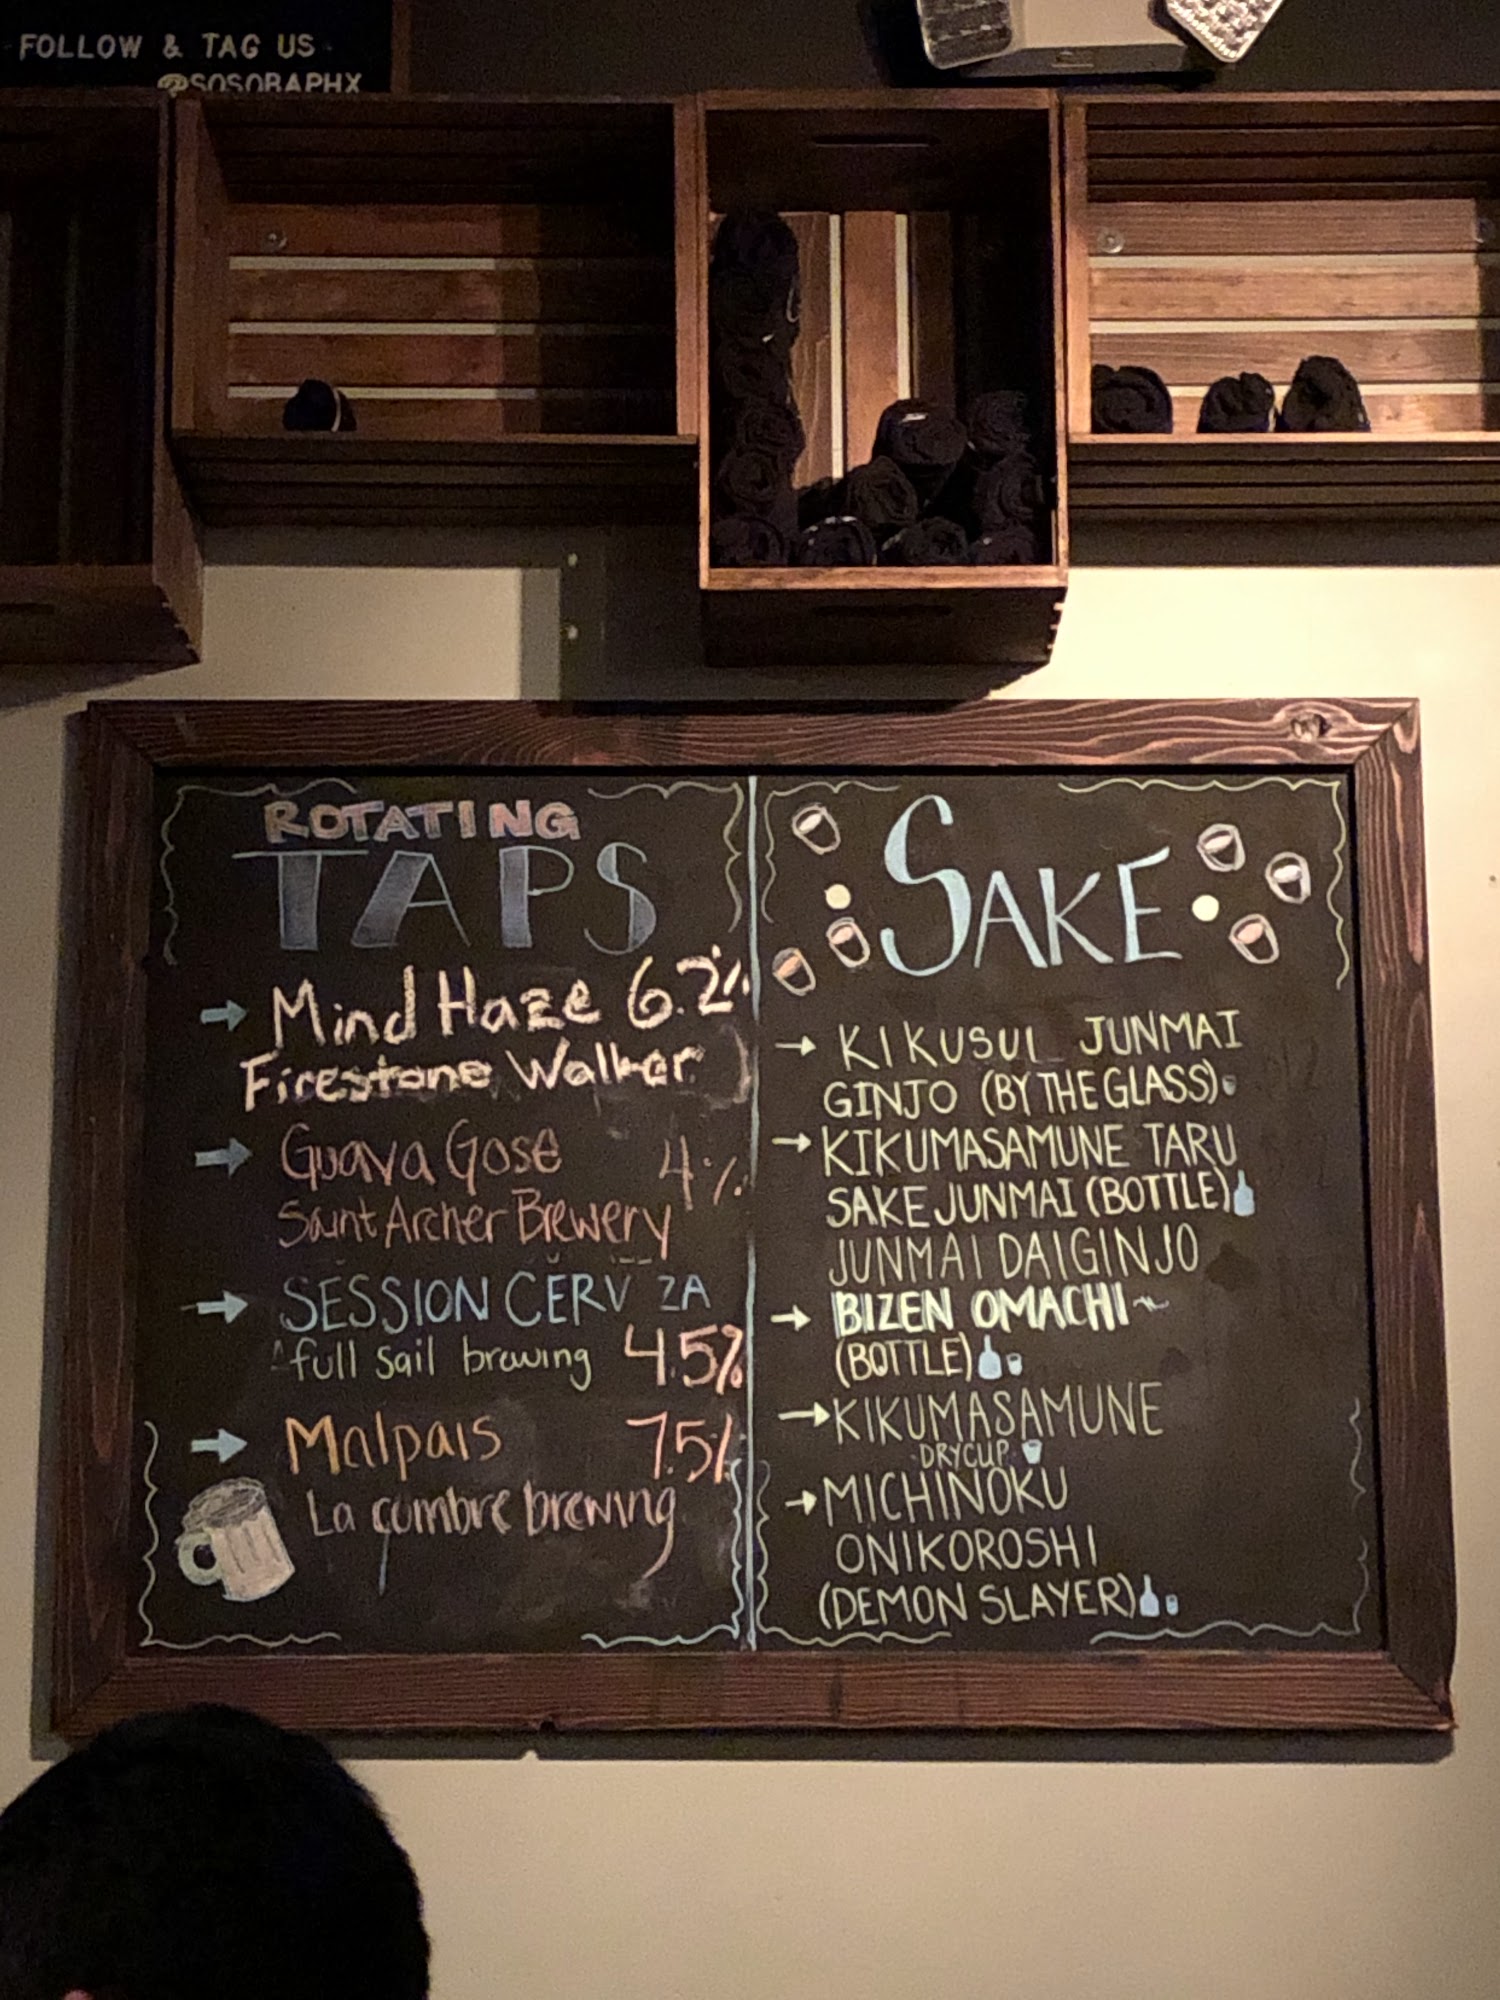 FOLLOW & TAG US
@SOSOBAPHX
ROTATING
TAPS
Mind Haze 6.2%
Firestone Walker
Guava Gose 4%
Saint Archer Brewery
SESSION CERV ZA
full sail brewing 4.5%
Malpais 7.5%
La cumbre brewing
SAKE
KIKUSUI JUNMAI
GINJO (BY THE GLASS)
KIKUMASAMUNE TARU
SAKE JUNMAI (BOTTLE)
JUNMAI DAIGINJO
BIZEN OMACHI
(BOTTLE)
KIKUMASAMUNE
DRY CUP
MICHINOKU
ONIKOROSHI
(DEMON SLAYER)